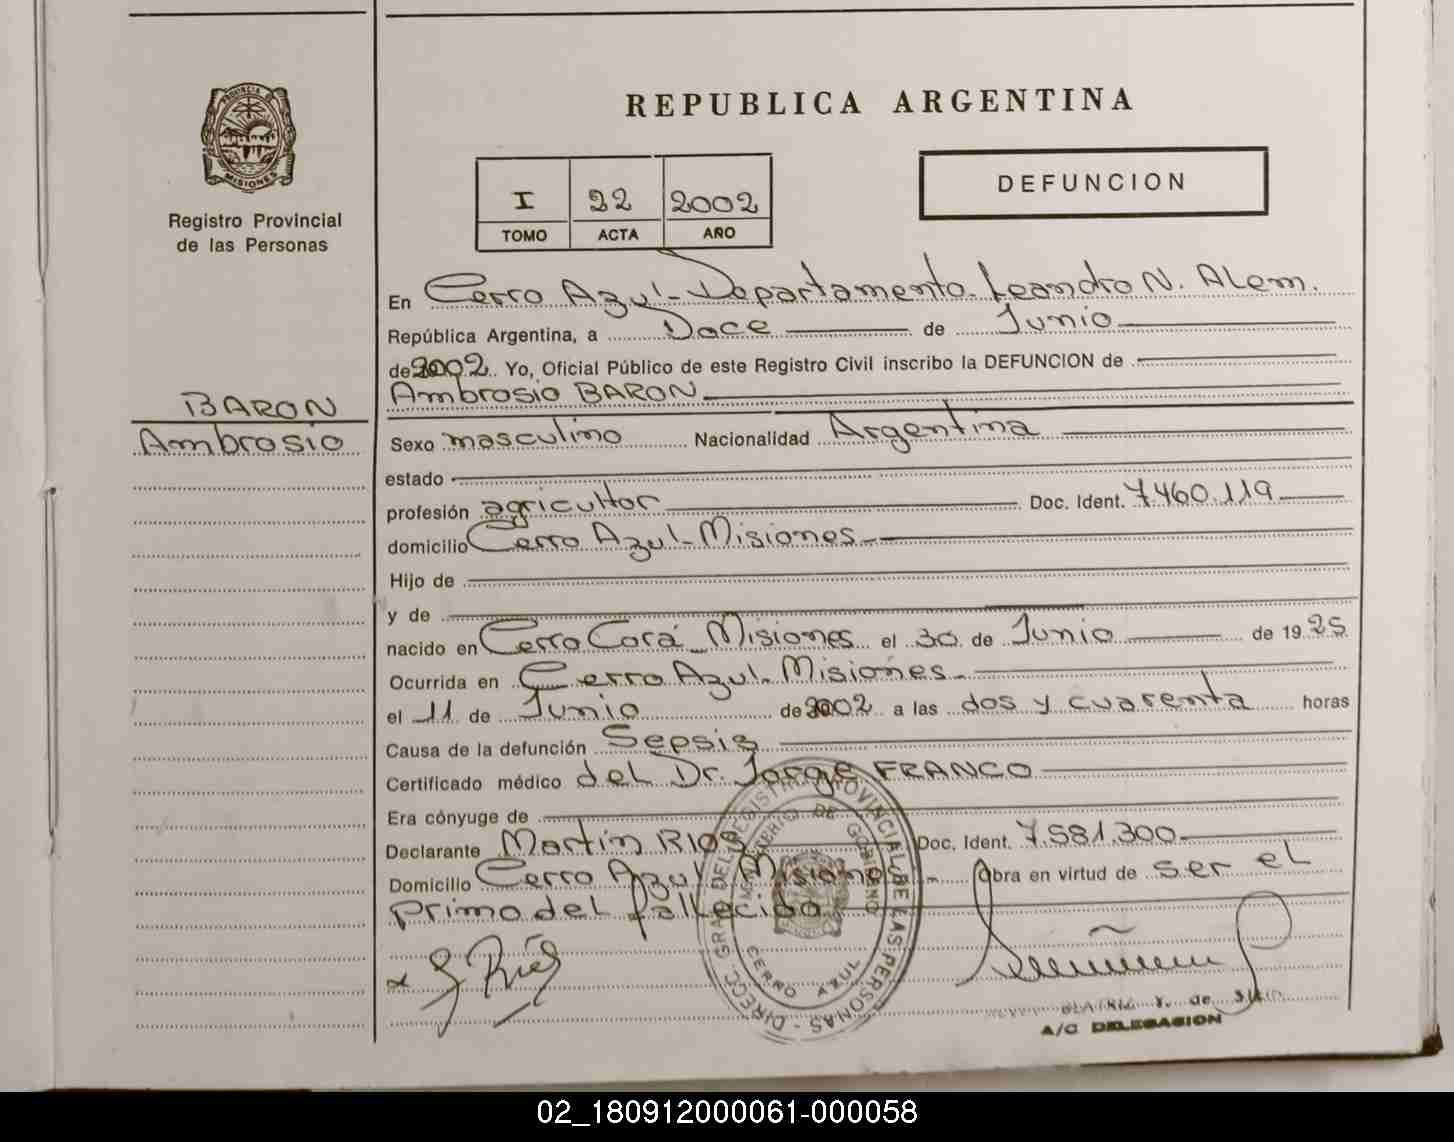 PROVINCIA DE
MISIONES
Registro Provincial
de las Personas
BARON
Ambrosio
REPUBLICA ARGENTINA
I 22 2002
TOMO ACTA AÑO
DEFUNCION
En Cerro Azul - Departamento Leandro N. Alem.
República Argentina, a Doce de Junio
de 2002 Yo, Oficial Público de este Registro Civil inscribo la DEFUNCION de
Ambrosio BARON
Sexo masculino Nacionalidad Argentina
estado
profesión agricultor Doc. Ident. 7.460.119
domicilio Cerro Azul - Misiones
Hijo de
y de
nacido en Cerro Corá Misiones el 30 de Junio de 1925
Ocurrida en Cerro Azul - Misiones
el 11 de Junio de 2002 a las dos y cuarenta horas
Causa de la defunción Sepsis
Certificado médico del Dr. Jorge FRANCO
Era cónyuge de
Declarante Martín RIOS Doc. Ident. 7.581.300
Domicilio Cerro Azul Misiones - Obra en virtud de ser el
primo del fallecido
DIRECC. GRAL DEL REGISTRO PROVINCIAL DE LAS PERSONAS
MINISTERIO DE GOBIERNO
CERRO AZUL
BEATRIZ de
A/C DELEGACION
02_180912000061-000058